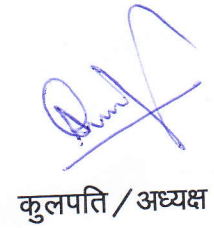 कुलपति / अध्यक्ष